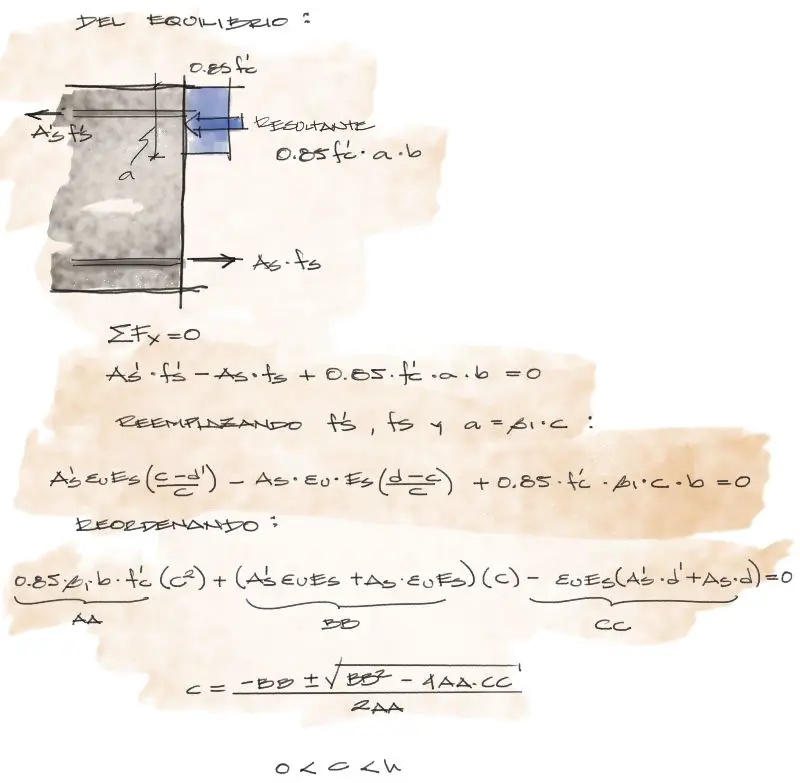 DEL EQUILIBRIO :
0.85 f'c
A's f's
RESULTANTE
0.85 f'c · a · b
a
As · fs
ΣFx = 0
A's · f's - As · fs + 0.85 · f'c · a · b = 0
REEMPLAZANDO f's , fs y a = β1 · c :
A's εu Es (c-d'/c) - As · εu · Es (d-c/c) + 0.85 · f'c · β1 · c · b = 0
REORDENANDO :
0.85 · β1 · b · f'c (c²) + (A's εu Es + As · εu Es) (c) - εu Es (A's · d' + As · d) = 0
AA
BB
CC
c = -BB ± √BB² - 4AA·CC / 2AA
0 < c < h